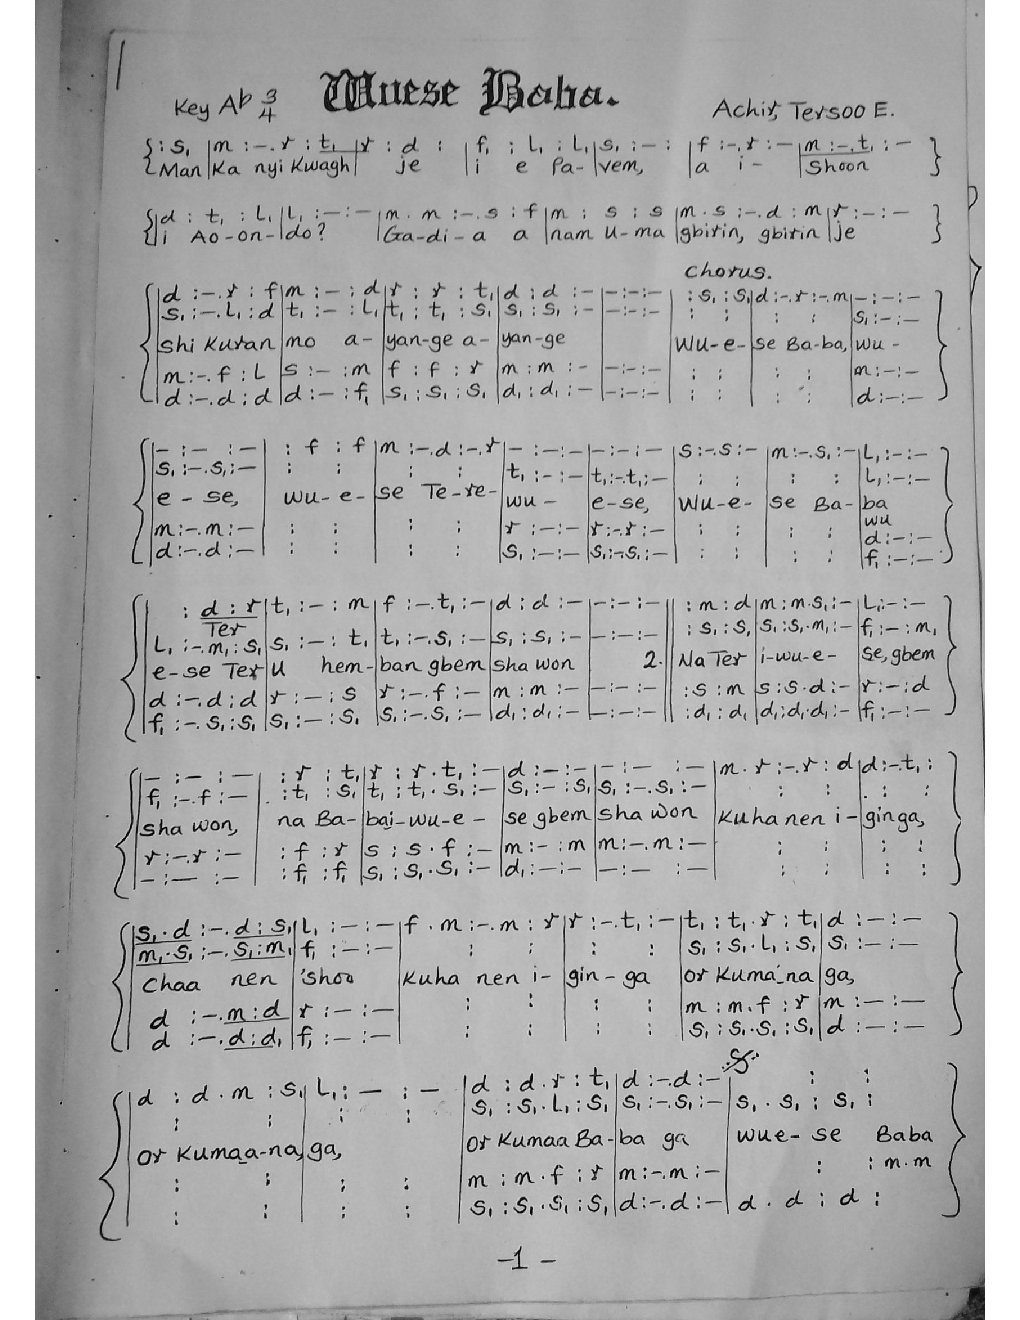 Wuese Baba.
Key Ab 3/4
Achir, Tersoo E.
{ : s, | m : - . r : t, | r : d : | f, : l, : l, | s, : - : | f : - . r : - | m : - . t, : - }
Man Ka nyi Kwagh je i e Pa- vem, a i - Shoon
{ | d : t, : l, | l, : - : - | m . m : - . s : f | m : s : s | m . s : - . d : m | r : - : - }
i Ao-on-do? Ga-di-a a nam U-ma gbirin, gbirin je
Chorus.
d : - . r : f | m : - : d | r : r : t, | d : d : - | - : - : - | : s, : s, | d : - . r : - . m | - : - : -
s, : - . l, : d | t, : - : l, | t, : t, : s, | s, : s, : - | - : - : - | : : | : : | s, : - : -
Shi Kuran mo a- yan-ge a- yan-ge Wu-e- se Ba-ba, wu -
m : - . f : l | s : - : m | f : f : r | m : m : - | - : - : - | : : | : : | m : - : -
d : - . d : d | d : - : f, | s, : s, : s, | d, : d, : - | - : - : - | : : | : : | d : - : -
- : - : - | : f : f | m : - . d : - . r | - : - : - | - : - : - | s : - . s : - | m : - . s, : - | l, : - : -
s, : - . s, : - | : : | : : | t, : - : - | t, : - . t, : - | : : | : : | l, : - : -
e - se, wu-e- se Te-re- wu - e-se, Wu-e- se Ba- ba
wu
m : - . m : - | : : | : : | r : - : - | r : - . r : - | : : | : : | d : - : -
d : - . d : - | : : | : : | s, : - : - | s, : - . s, : - | : : | : : | f, : - : -
: d : r | t, : - : m | f : - . t, : - | d : d : - | - : - : - || : m : d | m : m . s, : - | l, : - : -
Ter
l, : - . m, : s, | s, : - : t, | t, : - . s, : - | s, : s, : - | - : - : - || : s, : s, | s, : s, . m, : - | f, : - : m,
e-se Ter U hem-ban gbem sha won 2. Na Ter i-wu-e- se, gbem
d : - . d : d | r : - : s | r : - . f : - | m : m : - | - : - : - || : s : m | s : s . d : - | r : - : d
f, : - . s, : s, | s, : - : s, | s, : - . s, : - | d, : d, : - | - : - : - || : d, : d, | d, : d, . d, : - | f, : - : -
- : - : - | : r : t, | r : r . t, : - | d : - : - | - : - : - | m . r : - . r : d | d : - . t, :
f, : - . f : - | : t, : s, | t, : t, . s, : - | s, : - : s, | s, : - . s, : - | : : | : :
sha won, na Ba- bai-wu-e - se gbem sha won Kuha nen i-ginga,
r : - . r : - | : f : r | s : s . f : - | m : - : m | m : - . m : - | : : | : :
- : - : - | : f, : f, | s, : s, . s, : - | d, : - : - | - : - : - | : : | : :
s, . d : - . d : s, | l, : - : - | f . m : - . m : r | r : - . t, : - | t, : t, . r : t, | d : - : -
m, . s, : - . s, : m, | f, : - : - | : : | : : | s, : s, . l, : s, | s, : - : -
Chaa nen 'shoo Kuha nen i- gin-ga or Kuma-na ga,
d : - . m : d | r : - : - | : : | : : | m : m . f : r | m : - : -
d : - . d : d, | f, : - : - | : : | : : | s, : s, . s, : s, | d : - : -
d : d . m : s, | l, : - : - | d : d . r : t, | d : - . d : - | : :
: : | : : | s, : s, . l, : s, | s, : - . s, : - | s, . s, : s, :
or Kumaa-na, ga, or Kumaa Ba-ba ga wue- se Baba
: : | : : | m : m . f : r | m : - . m : - | : : m . m
: : | : : | s, : s, . s, : s, | d : - . d : - | d . d : d :
-1-